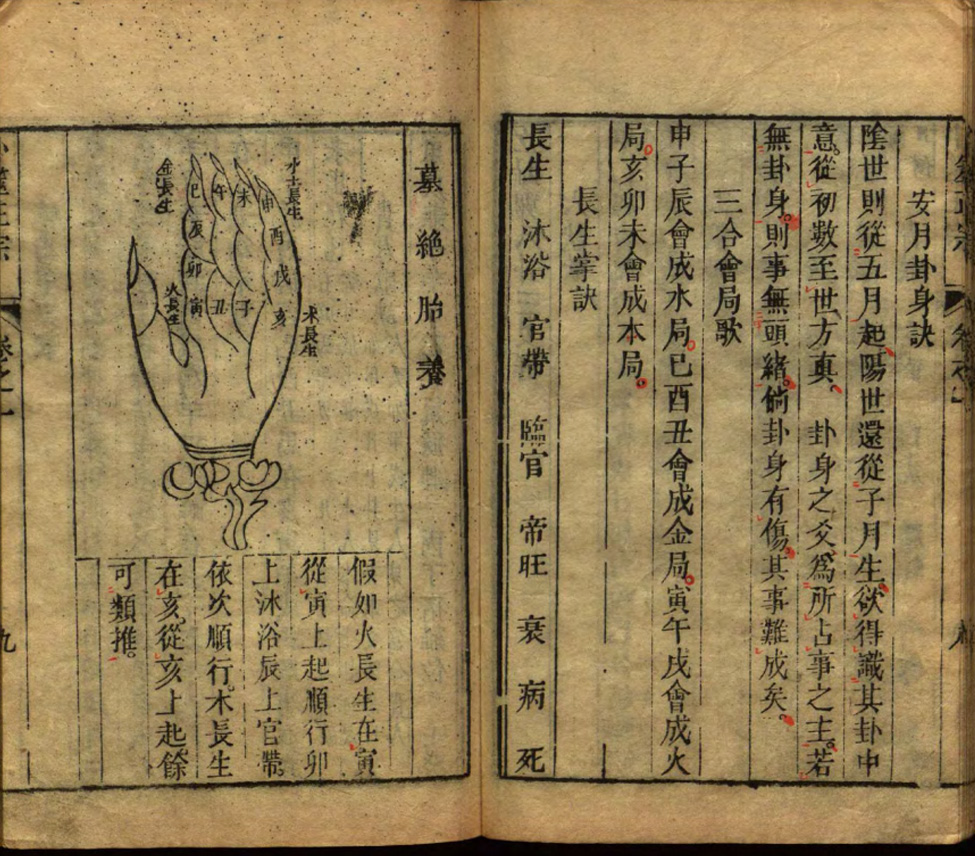 安月卦身訣
陰世則從五月起陽世還從子月生欲得識其卦中
意從初數至世方真 卦身之爻為所占事之主若
無卦身則事無頭緒倘卦身有傷其事難成矣
三合會局歌
申子辰會成水局巳酉丑會成金局寅午戌會成火
局亥卯未會成木局
長生掌訣
長生 沐浴 官帶 臨官 帝旺 衰 病 死
墓 絕 胎 養
水土長生
申 酉 戌 亥
木長生
未 子
午 丑
巳 辰 卯 寅
金長生
火長生
假如火長生在寅
從寅上起順行卯
上沐浴辰上官帶
依次順行木長生
在亥從亥上起餘
可類推
正宗
卷之一
九